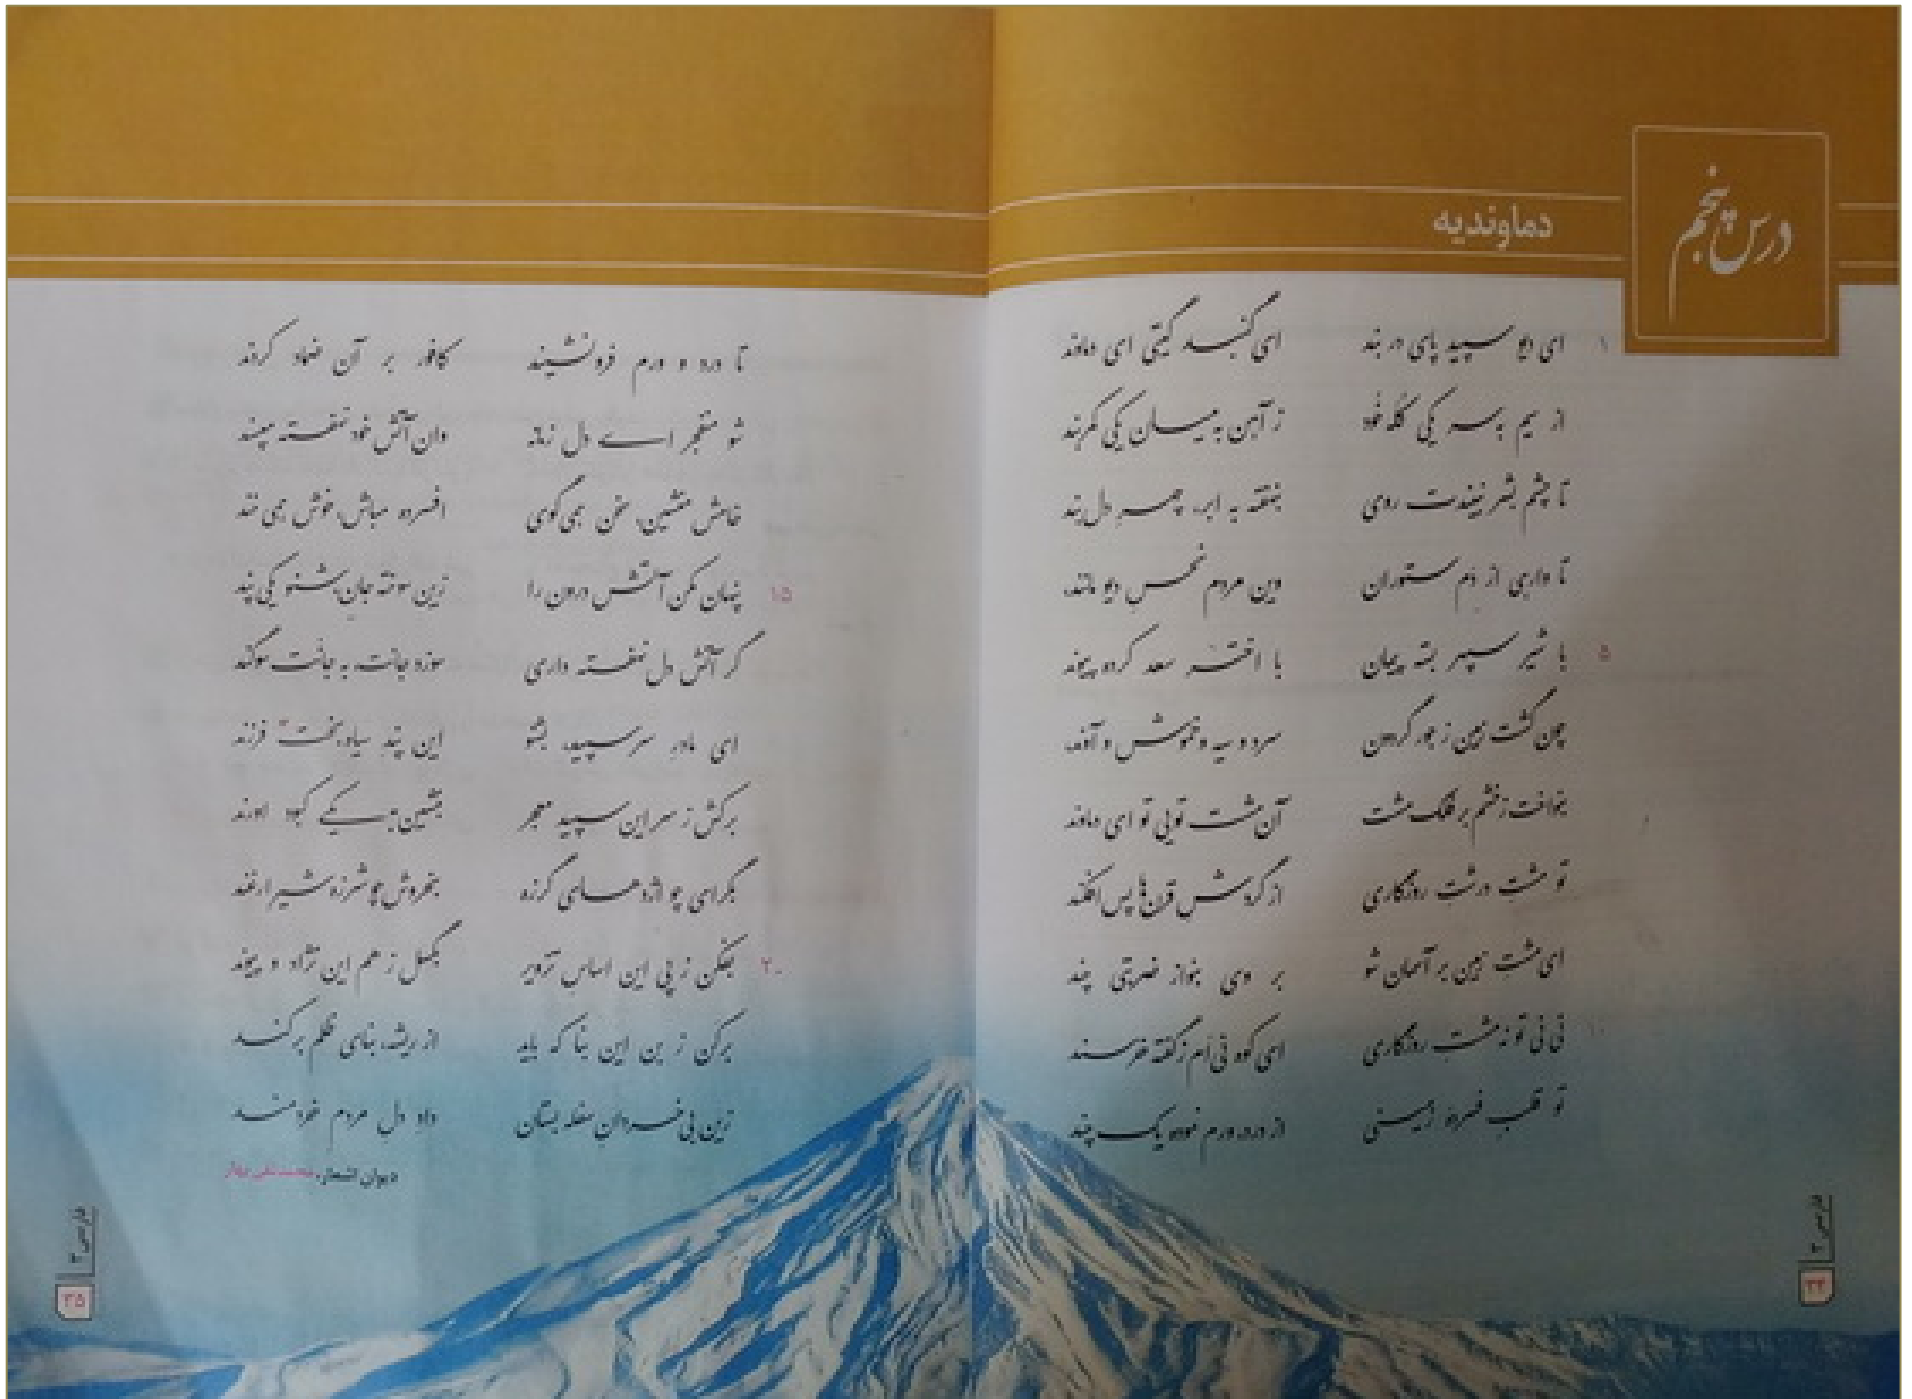 درس پنجم
دماوندیه
۱ ای دیو سپید پای در بند ای گنبد گیتی ای دماوند
از سیم به سر یکی کله‌خود ز آهن به میان یکی کمربند
تا چشم بشر نبیندت روی بنهفته به ابر، چهر دل‌بند
تا وارهی از دم ستوران وین مردم نحس دیو مانند
۵ با شیر سپهر بسته پیمان با اختر سعد کرده پیوند
چون گشت زمین ز جور گردون سرد و سیه و خموش و آوند
بنواخت ز خشم بر فلک مشت آن مشت تویی تو ای دماوند
تو مشت درشت روزگاری از گردش قرن‌ها پس افکند
ای مشت زمین بر آسمان شو بر وی بنواز ضربتی چند
۱۰ نی نی تو نه مشت روزگاری ای کوه نی‌ام ز گفته خرسند
تو قلب فسرده زمینی از درد ورم نموده یک چند
فارسی ۳
۳۴
تا درد و ورم فرونشیند کافور بر آن ضماد کردند
شو منفجر ای دل زمانه وان آتش خود نهفته مپسند
خامش منشین، سخن همی گوی افسرده مباش، خوش همی خند
۱۵ پنهان مکن آتش درون را زین سوخته جان، شنو یکی پند
گر آتش دل نهفته داری سوزد جانت، به جانت سوگند
ای مادر سرسپید، بشنو این پند سیاه بخت فرزند
برکش ز سر این سپید معجر بنشین به یکی کبود اورند
بگرای چو اژدهای گرزه بخروش چو شرزه شیر ارغند
۲۰ بفکن ز پی این اساس تزویر بگسل ز هم این نژاد و پیوند
برکن ز بن این بنا که باید از ریشه، بنای ظلم برکند
زین بی‌خردان سفله بستان داد دل مردم خردمند
دیوان اشعار، محمدتقی بهار
فارسی ۳
۳۵